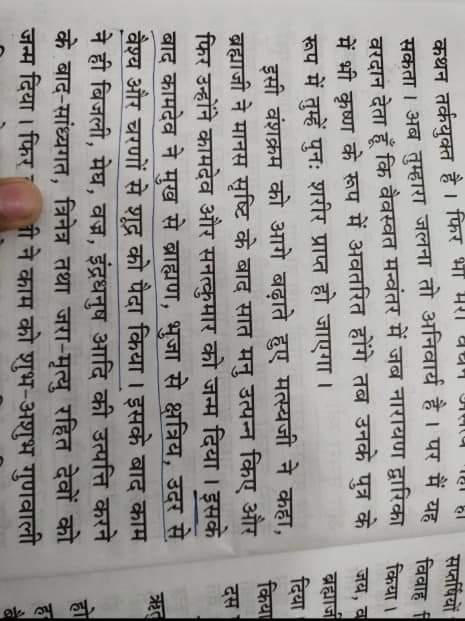 कथन तर्कयुक्त है। फिर भी मेरा वचन
सकता। अब तुम्हारा जलना तो अनिवार्य है। पर मैं यह
वरदान देता हूँ कि वैवस्वत मन्वंतर में जब नारायण द्वारिका
में श्री कृष्ण के रूप में अवतरित होंगे तब उनके पुत्र के
रूप में तुम्हें पुनः शरीर प्राप्त हो जाएगा।
इसी वंशक्रम को आगे बढ़ाते हुए मत्स्यजी ने कहा,
ब्रह्माजी ने मानस सृष्टि के बाद सात मनु उत्पन्न किए और
फिर उन्होंने कामदेव और सनत्कुमार को जन्म दिया। इसके
बाद कामदेव ने मुख से ब्राह्मण, भुजा से क्षत्रिय, उदर से
वैश्य और चरणों से शूद्र को पैदा किया। इसके बाद काम
ने ही बिजली, मेघ, वज्र, इंद्रधनुष आदि की उत्पत्ति करने
के बाद-साध्यगत, त्रिनेत्र तथा जरा-मृत्यु रहित देवों को
जन्म दिया। फिर ने काम को शुभ-अशुभ गुणवाली
विवाह
किया।
जय,
दिया
किया
दस